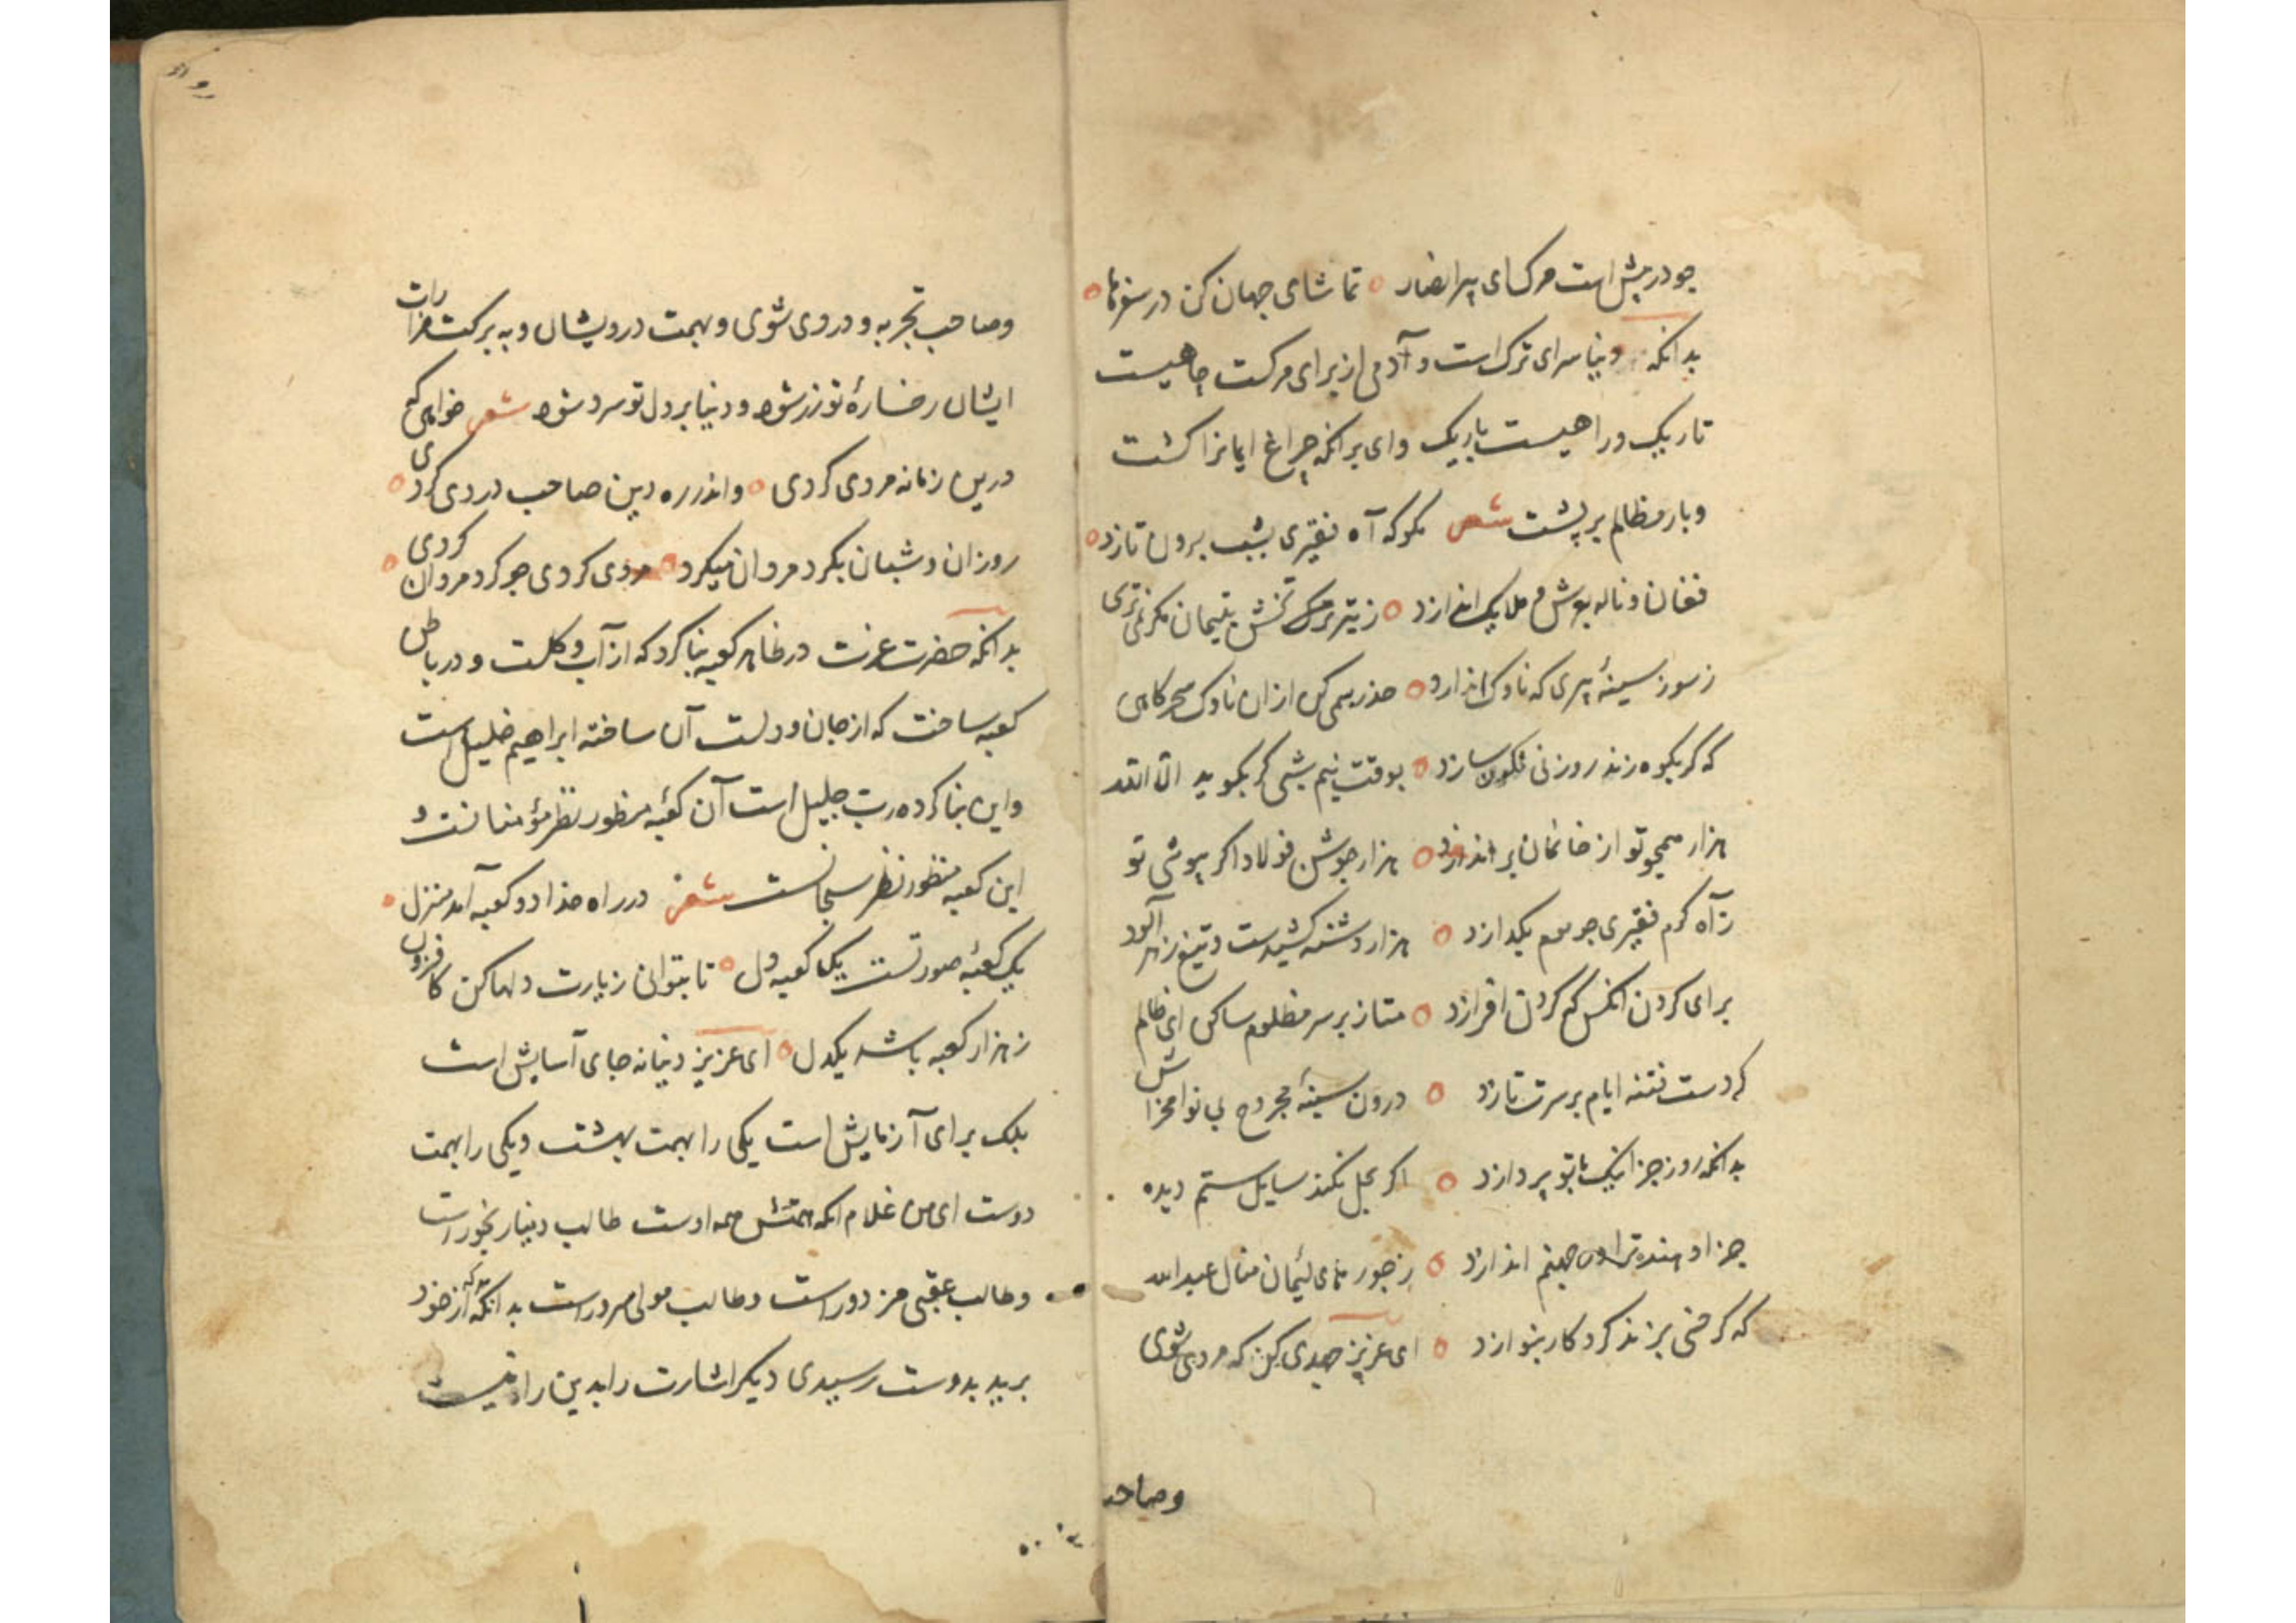 چو در پیش است مرک ای پیر انصار تماشای جهان کن در سفرها
بدانکه دنیا سرای ترک است و آدمی از برای مرکست چاهیست
تاریک و راهیست باریک وای بر انکه چراغ ایمانرا کشت
و بار مظالم بر پشت شعر مکو که آه فقیری بشب برون تازد
فغان و ناله بعرش و ملایک اندازد ز تیر ترکش یتیمان مکر نمی ترسی
ز سوز سینهٔ پیری که ناوک اندازد حذر همی کن از ان ناوک سحرکاهی
که کر بکوه زند روزنی نکون سازد بوقت نیم شبی کر بکوید الله الله
هزار همچو تو از خانمان بر اندازد هزار جوشن فولاد اکر بپوشی تو
ز آه کرم فقیری چو موم بکدازد هزار دشنه کشیدست و تیغ زهر آلود
برای کردن انکس که کردن افرازد متاز بر سر مظلوم ساکن ای ظالم
که دست فتنه ایام بر سرت تازد درون سینهٔ مجروح بی نوا مخراش
بدانکه روز جزا نیک با تو پردازد اکر بحل نکند سایل ستم دیده
جزا دهنده ترا در جهنم اندازد ز جور های لئیمان منال عبدالله
که کر خسی بزند کردکار بنوازد ای عزیز جهدی کن که مردی شوی
وصاحب
وصاحب تجربه و دردی شوی و بهمت درویشان و به برکت مزارات
ایشان رخسارهٔ تو زرد شود و دنیا بر دل تو سرد شود شعر خواهی که
درین زمانه مردی کردی واندر ره دین صاحب دردی کردی
روزان و شبان بکرد مردان میکرد مردی کردی چو کرد مردان کردی
بدانکه حضرت عزت در ظاهر کعبه بنا کرد که از آب و کلست و در باطن
کعبه ساخت که از جان و دلست آن ساخته ابراهیم خلیل است
واین بنا کرده رب جلیل است آن کعبهٔ منظور نظر مؤمنانست و
این کعبه منظور نظر سبحانست شعر در راه خدا دو کعبه آمد منزل
یک کعبهٔ صورتست یک کعبه دل تا بتوانی زیارت دلها کن کافزون
ز هزار کعبه باشد یکدل ای عزیز دنیا نه جای آسایش است
بلک برای آزمایش است یکی را بهمت بهشت و یکی را بهمت
دوست ای من غلام انکه همتش همه اوست طالب دنیا رنجور است
وطالب عقبی مزدور است وطالب مولی مسرور است بدانکه که از خود
برید بدوست رسیدی دیکر اشارت را بدین راه نیست